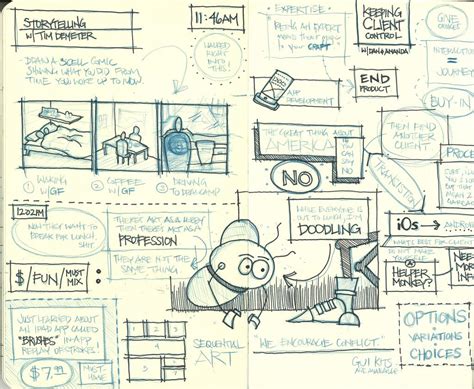 STORYTELLING
W/ TIM DEMETER
11:46AM
DRAW A 3CELL COMIC
SHOWING WHAT YOU'D DO FROM
TIME YOU WOKE UP TO NOW.
WALKED
RIGHT
INTO
THIS!
① WAKING
W/GF
② COFFEE
W/GF
③ DRIVING
TO DEVCAMP
EXPERTISE:
BEING AN EXPERT
MEANS
YOUR
CRAFT
APP
DEVELOPMENT
END
PRODUCT
KEEPING
CLIENT
CONTROL
W/DAN & AMANDA
GIVE
INTERACTION
= JOURNEY
BUY-IN
THEN FIND
ANOTHER
CLIENT
PROCE
THE GREAT THING ABOUT
AMERICA
IS
YOU
CAN
SAY
NO
NO
12:02PM
NOW THEY WANT TO
BREAK FOR LUNCH,
SHIT
THERE'S ART AS A HOBBY
THEN THERE'S ART AS A
PROFESSION
THEY ARE NOT THE
SAME THING
$/FUN/MUST
MIX:
WHILE EVERYONE IS
OUT TO LUNCH, I'M
DOODLING
iOS → ANDROID
WHAT'S BEST FOR CLIENT?
DO NOT MAKE
YOURSELF
A
HELPER
MONKEY?
NEED
MORE
INFO
JUST HEARD ABOUT
AN IPAD APP CALLED
"BRUSHES" IN APP
REPLAY OF STROKES!
$7.99
MUST
HAVE
SEQUENTIAL
ART
"WE ENCOURAGE CONFLICT."
GUI KITS
OPTIONS
VARIATIONS
• CHOICES